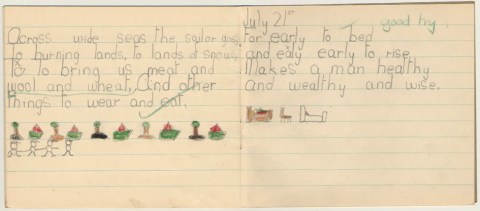 Across wide seas the sailor goes
To burning lands, to lands of snow,
To to bring us meat and
wool and wheat, And other
things to wear and eat.
July 21st
good try.
For early to bed
and ealy early to rise
Makes a man healthy
and wealthy and wise.